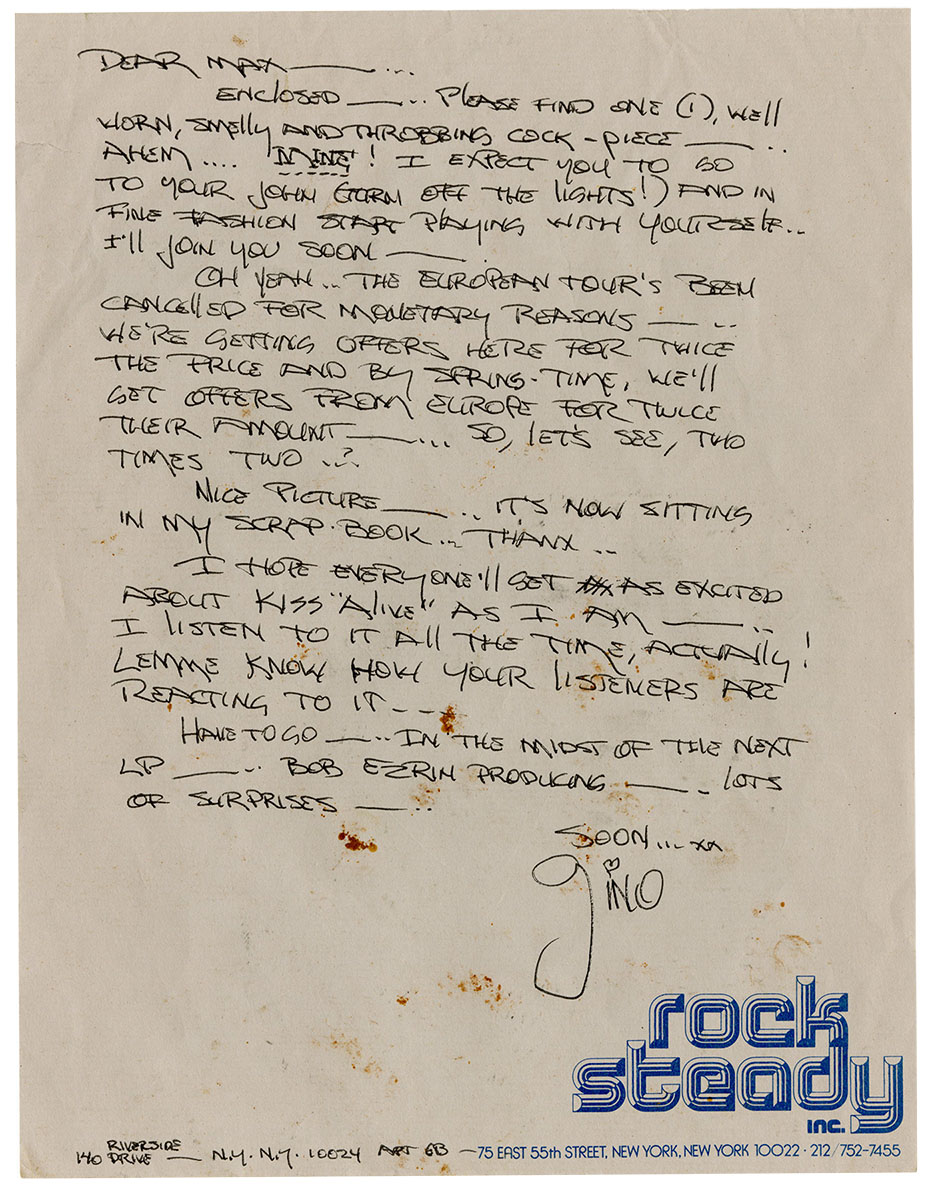 DEAR MAX —— ...
ENCLOSED —— .. PLEASE FIND ONE (1), WELL
WORN, SMELLY AND THROBBING COCK-PIECE —— ..
AHEM .... MINE! I EXPECT YOU TO GO
TO YOUR JOHN (TURN OFF THE LIGHTS!) AND IN
FINE FASHION START PLAYING WITH YOURSELF..
I'LL JOIN YOU SOON —— .
OH YEAH... THE EUROPEAN TOUR'S BEEN
CANCELLED FOR MONETARY REASONS —— ..
WE'RE GETTING OFFERS HERE FOR TWICE
THE PRICE AND BY SPRING-TIME, WE'LL
GET OFFERS FROM EUROPE FOR TWICE
THEIR AMOUNT —— ... SO, LET'S SEE, TWO
TIMES TWO ..?
NICE PICTURE —— .. IT'S NOW SITTING
IN MY SCRAP-BOOK ... THANX ..
I HOPE EVERYONE'LL GET AS EXCITED
ABOUT KISS "ALIVE" AS I AM —— ..
I LISTEN TO IT ALL THE TIME, ACTUALLY!
LEMME KNOW HOW YOUR LISTENERS ARE
REACTING TO IT - - -
HAVE TO GO —— .. IN THE MIDST OF THE NEXT
LP —— .. BOB EZRIN PRODUCING —— . LOTS
OF SURPRISES —— ..
SOON... xx
gINO
rock
steady
inc.
140 RIVERSIDE DRIVE — N.Y. N.Y. 10024 APT 6B — 75 EAST 55th STREET, NEW YORK, NEW YORK 10022 · 212/752-7455